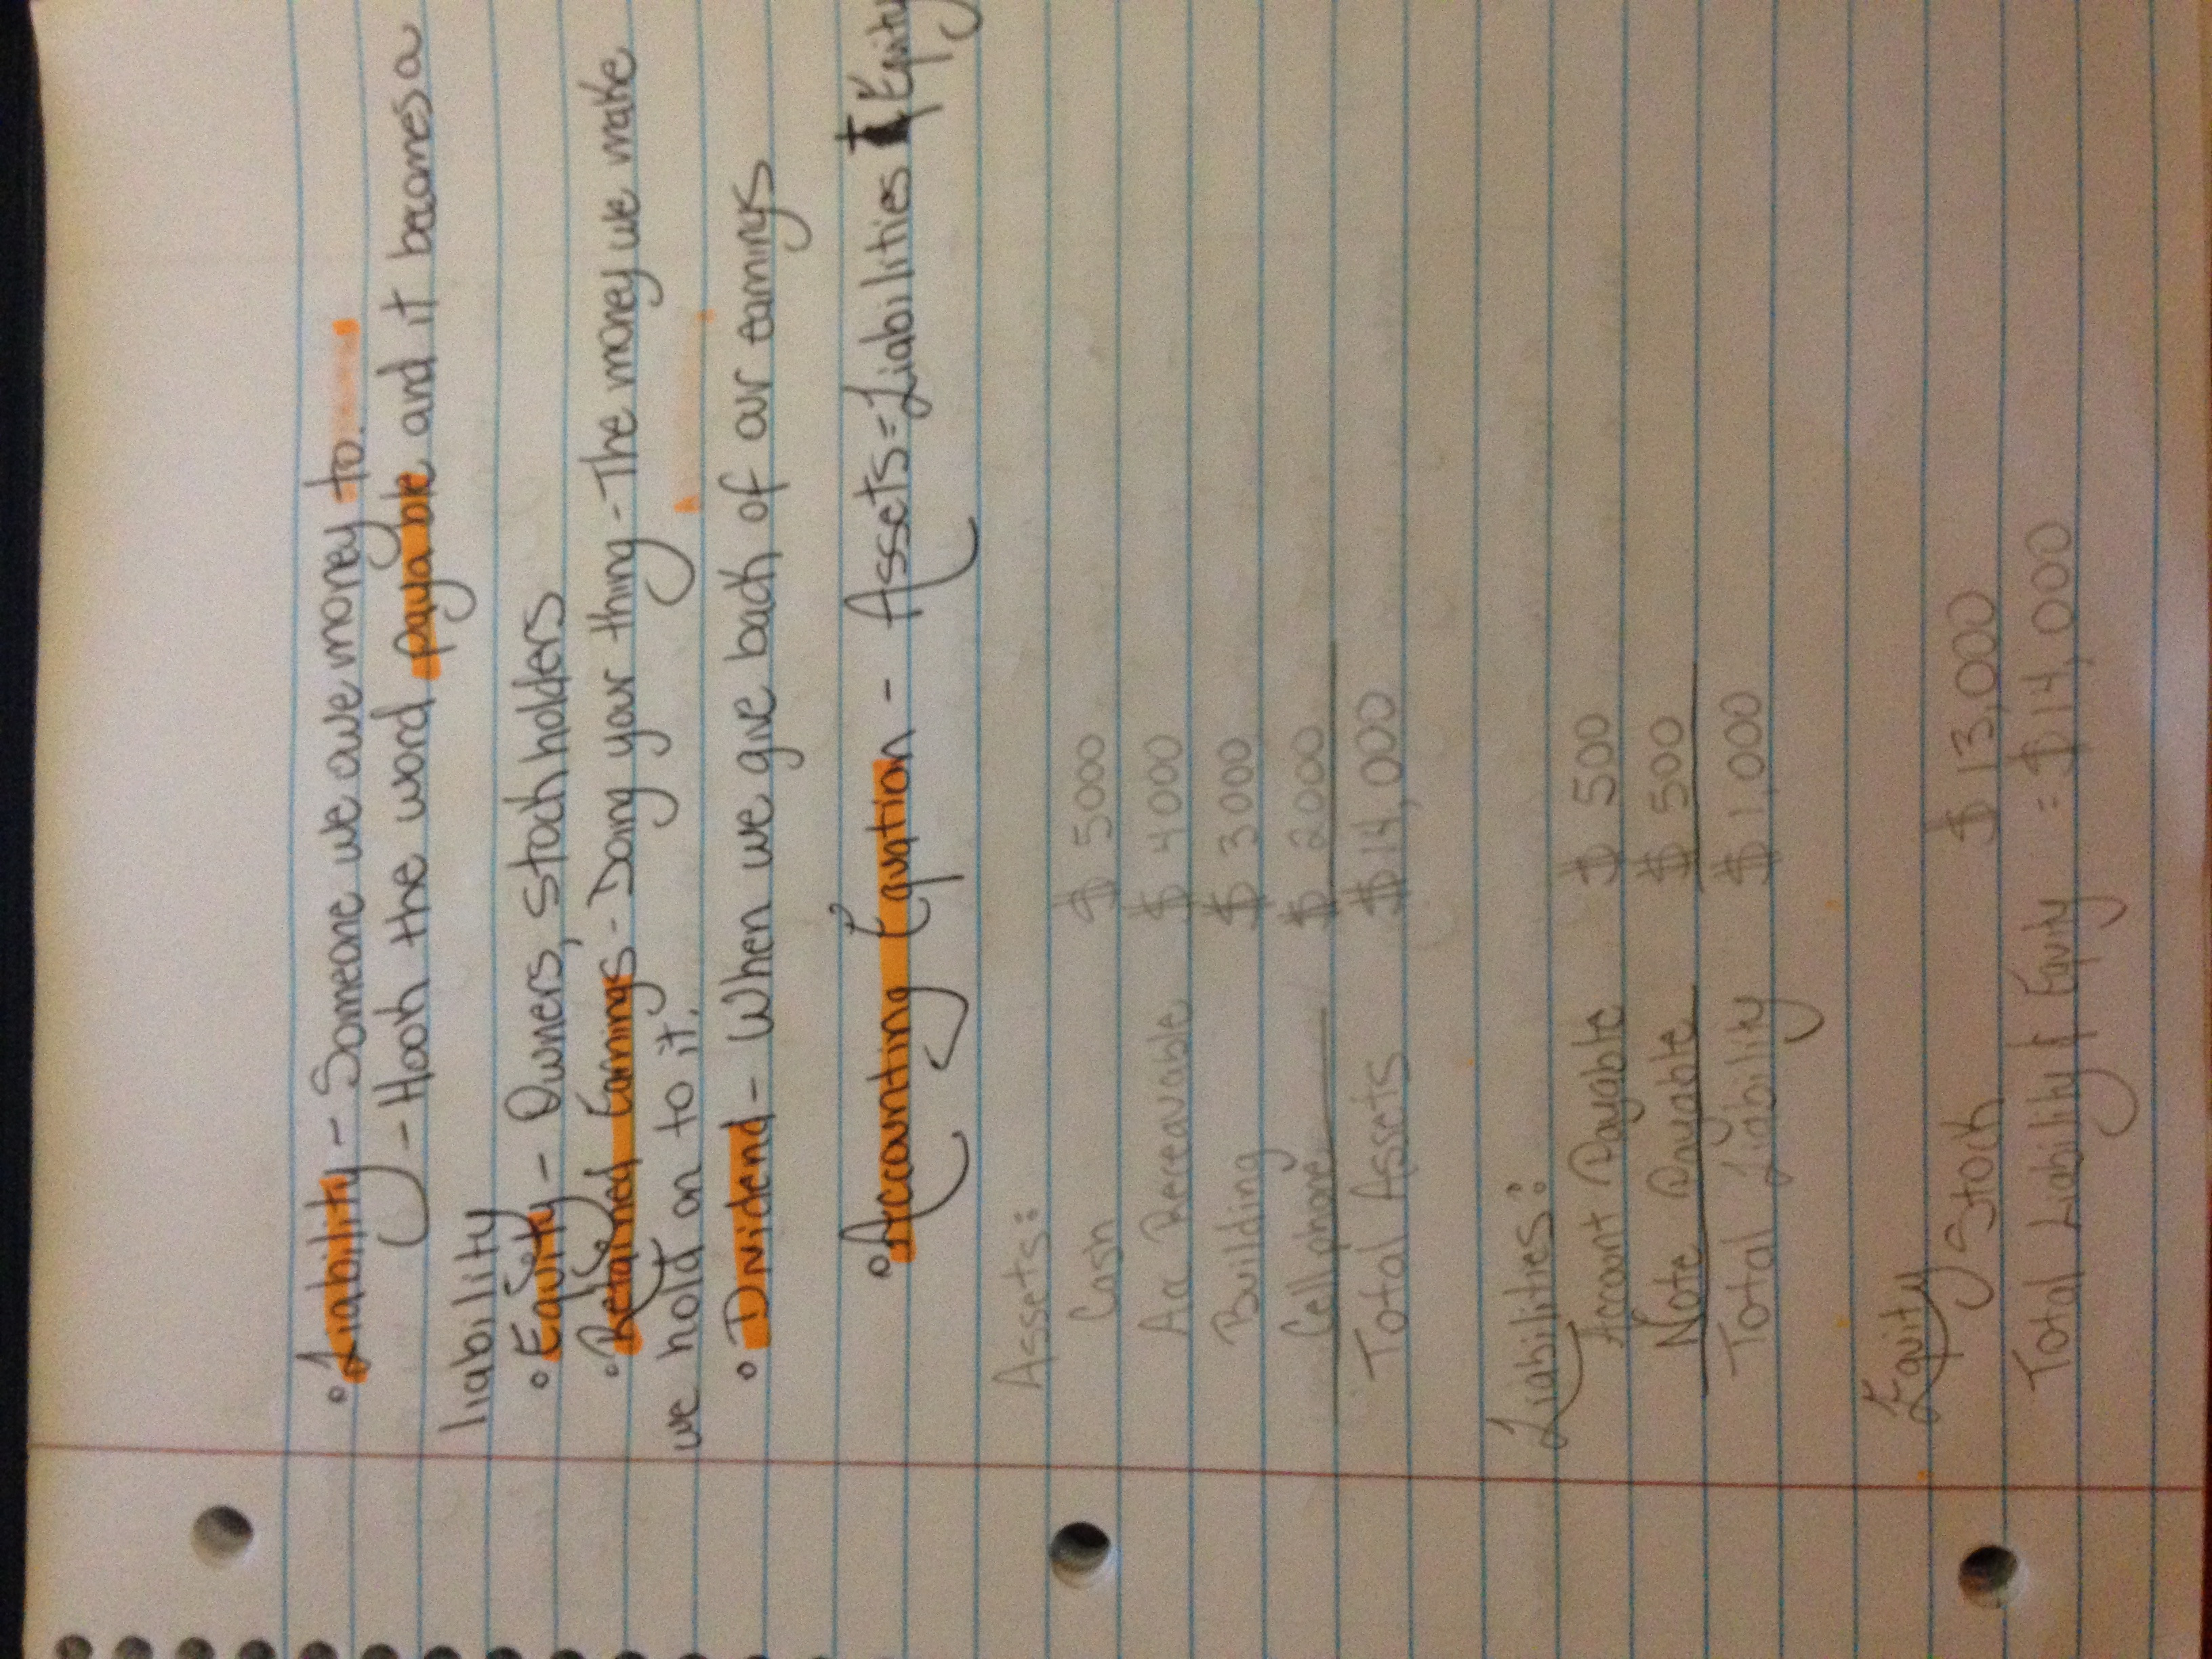 • Liability - Someone we owe money to.
- Hook the word payable and it becomes a
liability
• Equity - Owners, Stock holders
• Retained Earnings - Doing your thing - The money we make
we hold on to it.
• Dividend - When we give back of our earnings
• Accounting Equation - Assets = Liabilities + Equity
Assets:
Cash $ 5000
Ac Receavable $ 4000
Building $ 3000
Cell phone $ 2000
Total Assets $ 14,000
Liabilities:
Account Payable $ 500
Note Payable $ 500
Total Liability $ 1,000
Equity
Stock $ 13,000
Total Liability & Equity = $ 14,000